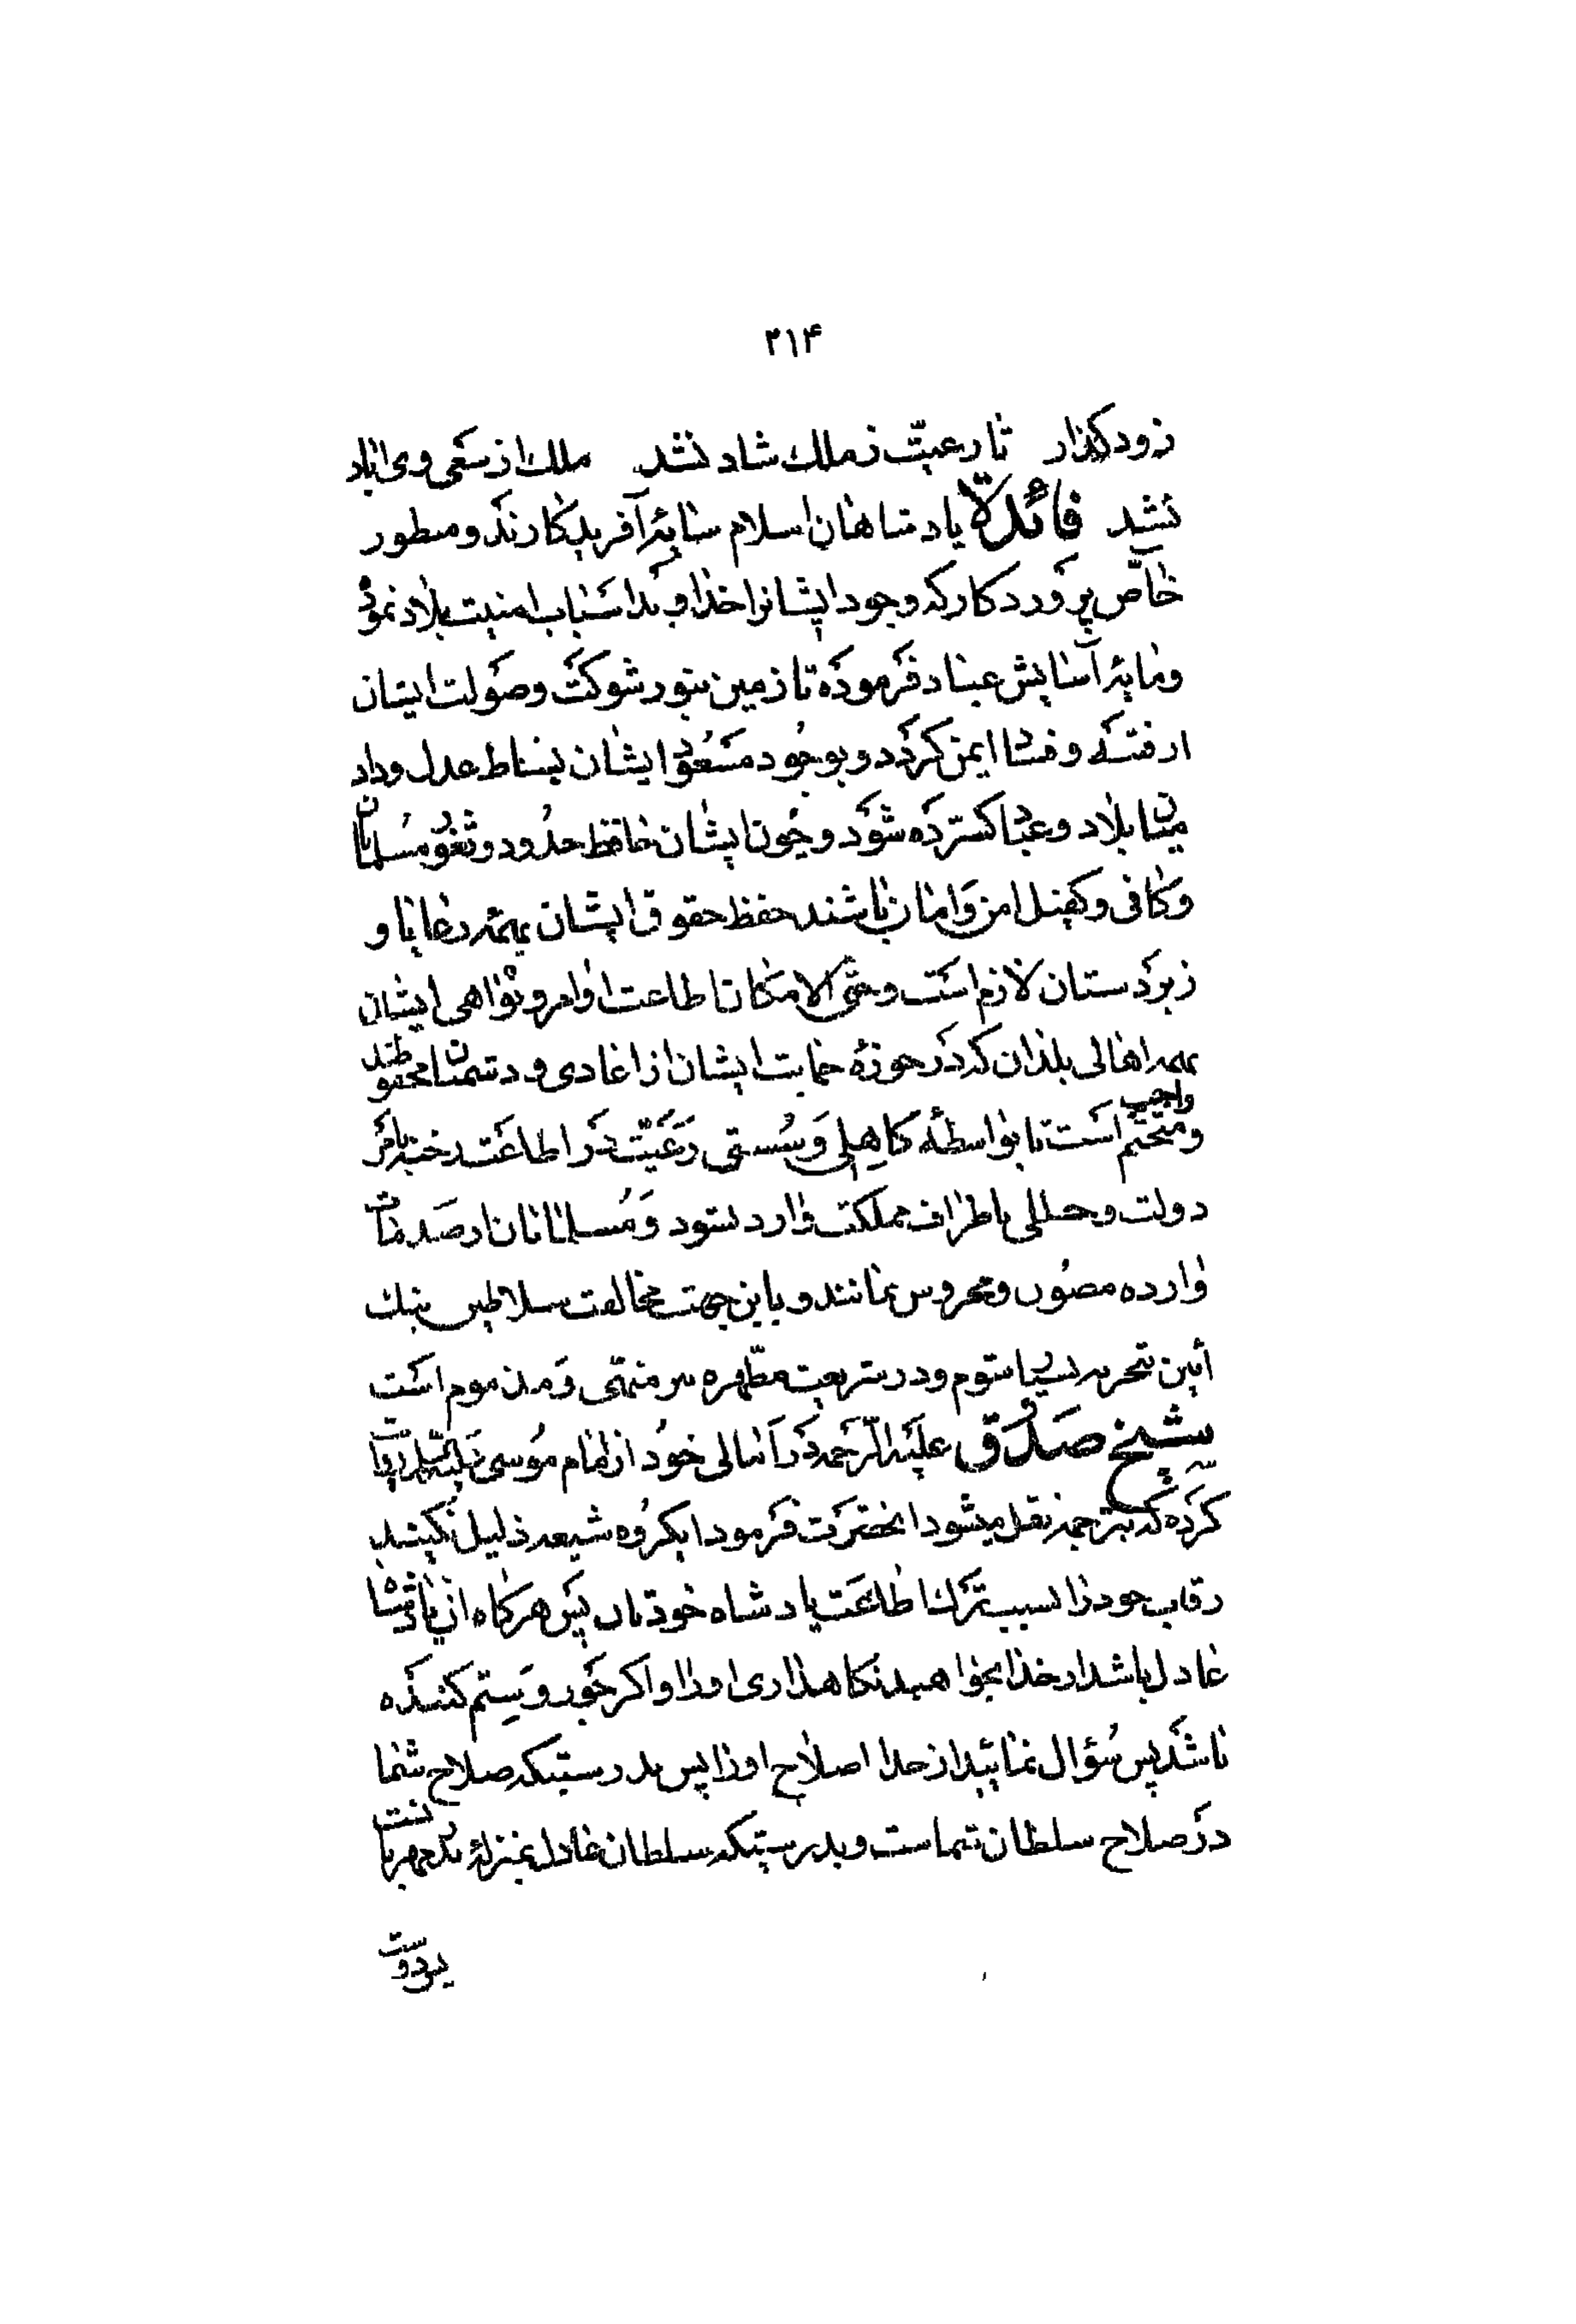 ۲۱۴
زود کذار تا رعیّت ز ملك شاد نشد ملك از سَعی وی اباد
نشد فائدة پادشاهان اسلام سایهٔ آفریدکارند و منظور
خاصّ پرورد کارکه وجود ایشانرا خداوند اسباب امنیت بلاد نموده
و مایهٔ آسایش عباد فرموده تا زمین بنور شوکت و صولت ایشان
از فتنه و فساد ایمن کردد و بوجود مسعود ایشان بساط عدل و داد
میان بلاد و عباد کسترده شود و چون ایشان حافظ حدود و ثغور مسلمانان
و کافی و کفیل امن و امان باشند حفظ حقوق ایشان بهمه رعایا و
زیردستان لازم است و حتی الامکان اطاعت اوامر و نواهی ایشان
بهمه اهالی بلدان که در حوزهٔ حمایت ایشان از اعادی و دشمنان محفوظند
واجب و متحتم است تا بواسطهٔ کاهلی و سستی رعیّت در اطاعت رخنه بامر
دولت و خللی باطراف مملکت وارد نشود و مسلمانان از صدمات
وارده مصون و محروس بمانند و باین جهت مخالفت سلاطین نیك
آیین و در شریعت مطهره منهی و مذموم است
شیخ صدوق علیه الرّحمه در امالی خود از امام موسی علیه السّلام روایت
کرده که بترجمه نقل میشود انحضرت فرمود ایکروه شیعه ذلیل نکنید
رقاب خود را بسبب ترك اطاعت پادشاه خودتان پس هرکاه ان پادشاه
عادل باشد از خدا بخواهید نکاهداری او را و اکر جور و ستم کننده
باشد پس سؤال نمائید از خدا اصلاح او را پس بدرستیکه صلاح شما
در صلاح سلطان شماست و بدرستیکه سلطان عادل بمنزلهٔ پدر مهربانست
پس دوست